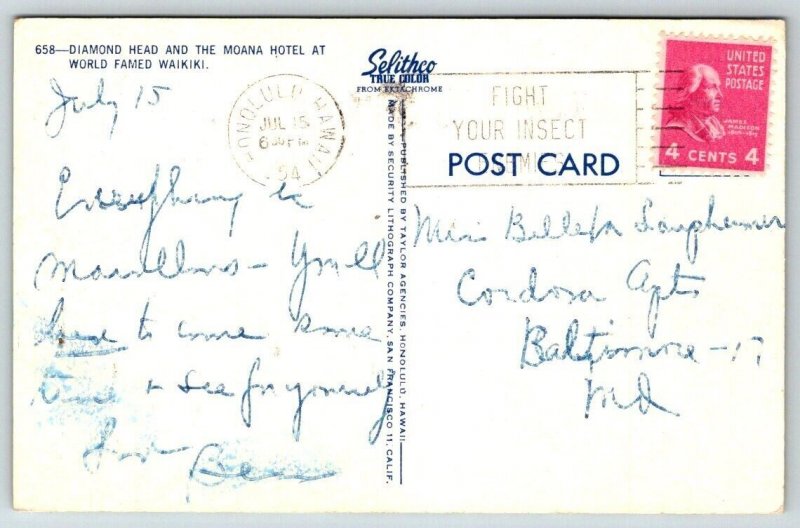 658—DIAMOND HEAD AND THE MOANA HOTEL AT
WORLD FAMED WAIKIKI.
Selithco
TRUE COLOR
FROM EKTACHROME
July 15
HONOLULU HAWAII
JUL 15
6 PM
54
FIGHT
YOUR INSECT
ENEMIES
UNITED
STATES
POSTAGE
JAMES
MADISON
4 CENTS 4
POST CARD
Everything is
Marvellous – You'll
have to come some
time & see for yourself
Love
Ben
PUBLISHED BY TAYLOR AGENCIES, HONOLULU, HAWAII
MADE BY SECURITY LITHOGRAPH COMPANY, SAN FRANCISCO 11, CALIF.
Miss
Cordova Apts
Baltimore – 17
Md